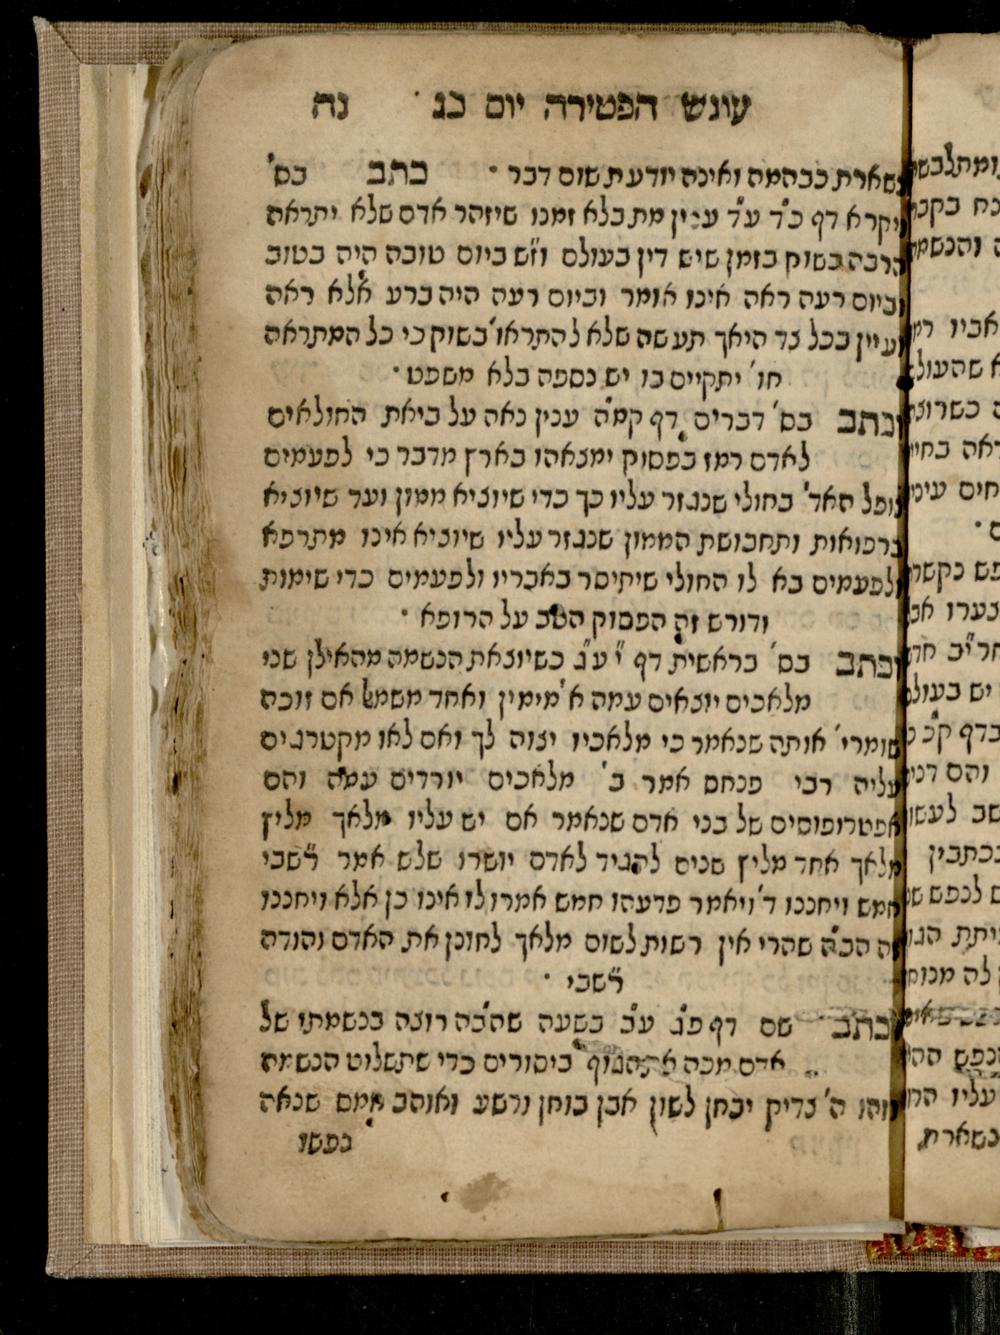 עונש הפטירה יום כג נח
נשארת ככהמה ואינה יודעת שום דבר · כתב בס'
ויקרא דף כ"ד ע"ד ענין מת בלא זמנו שיזהר אדם שלא יתראה
הרבה בשוק בזמן שיש דין בעולם וז"ש ביום טובה היה בטוב
וביום רעה ראה אינו אומר וביום רעה היה ברע אלא ראה
ועיין בכל צד היאך תעשה שלא להתראו' בשוק כי כל המתראה
חו' יתקיים בו יש נספה בלא משפט ·
וכתב בס' דברים דף קמ"ה ענין נאה על ביאת החולאים
לאדם רמז בפסוק ימצאהו בארץ מדבר כי לפעמים
נופל האד' בחולי שנגזר עליו כך כדי שיוציא ממון ועד שיוציא
ברפואות ותחבושת הממון שנגזר עליו שיוציא אינו מתרפא
ולפעמים בא לו החולי שיתיסר באבריו ולפעמים כדי שימות
ודורש זה הפסוק הטב על הרופא ·
וכתב בס' בראשית דף י' ע"ג כשיוצאת הנשמה מהאילן שני
מלאכים יוצאים עמה א' מימין ואחד משמאל אם זוכה
שומרי' אותה שנאמר כי מלאכיו יצוה לך ואם לאו מקטרגים
עליה רבי פנחס אמר ב' מלאכים יורדים עמה והם
אפטרופוסים של בני אדם שנאמר אם יש עליו מלאך מליץ
מלאך אחד מליץ שנים להגיד לאדם יושרו שלש אמר רשב"י
חמש ויחננו ד' ויאמר פדעהו חמש אמרו לו אינו כן אלא ויחננו
זה הב"ה שהרי אין רשות לשום מלאך לחונן את האדם והודה
רשב"י ·
וכתב שם דף פ"ג ע"ב בשעה שהב"ה רוצה בנשמתו של
אדם מכה את הגוף ביסורים כדי שתשלוט הנשמה
וזהו ה' צדיק יבחן לשון אבן בוחן ורשע ואוהב חמס שנאה
נפשו